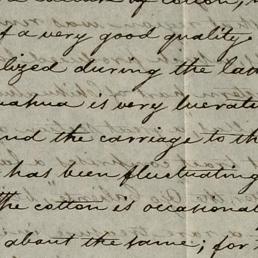 culture of cotton,
f a very good quality.
lized during the la
uahua is very lucrati
nd the carriage to th
has been fluctuating
The cotton is occasional
about the same; for